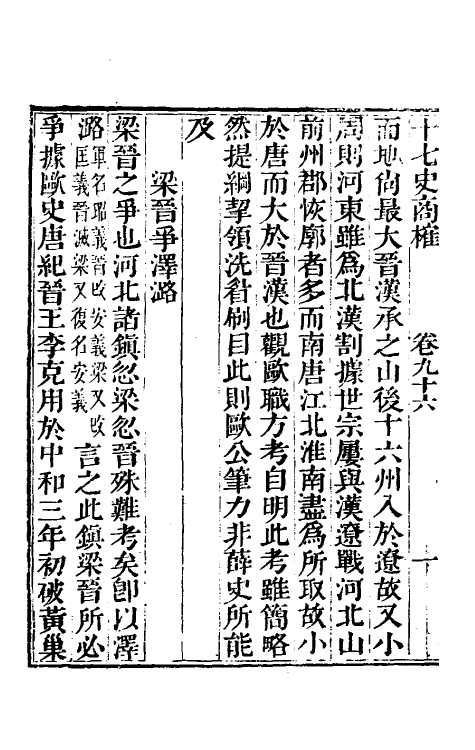 十七史商榷　卷九十六　一
而地尙最大晉漢承之山後十六州入於遼故又小
周則河東雖爲北漢割據世宗屢與漢遼戰河北山
前州郡恢廓者多而南唐江北淮南盡爲所取故小
於唐而大於晉漢也觀歐職方考自明此考雖簡略
然提綱挈領洗眉刷目此則歐公筆力非薛史所能
及
梁晉爭澤潞
梁晉之爭也河北諸鎭忽梁忽晉殊難考矣卽以澤
潞軍名昭義晉改安義梁又改匡義晉滅梁又復名安義言之此鎭梁晉所必
爭據歐史唐紀晉王李克用於中和三年初破黃巢